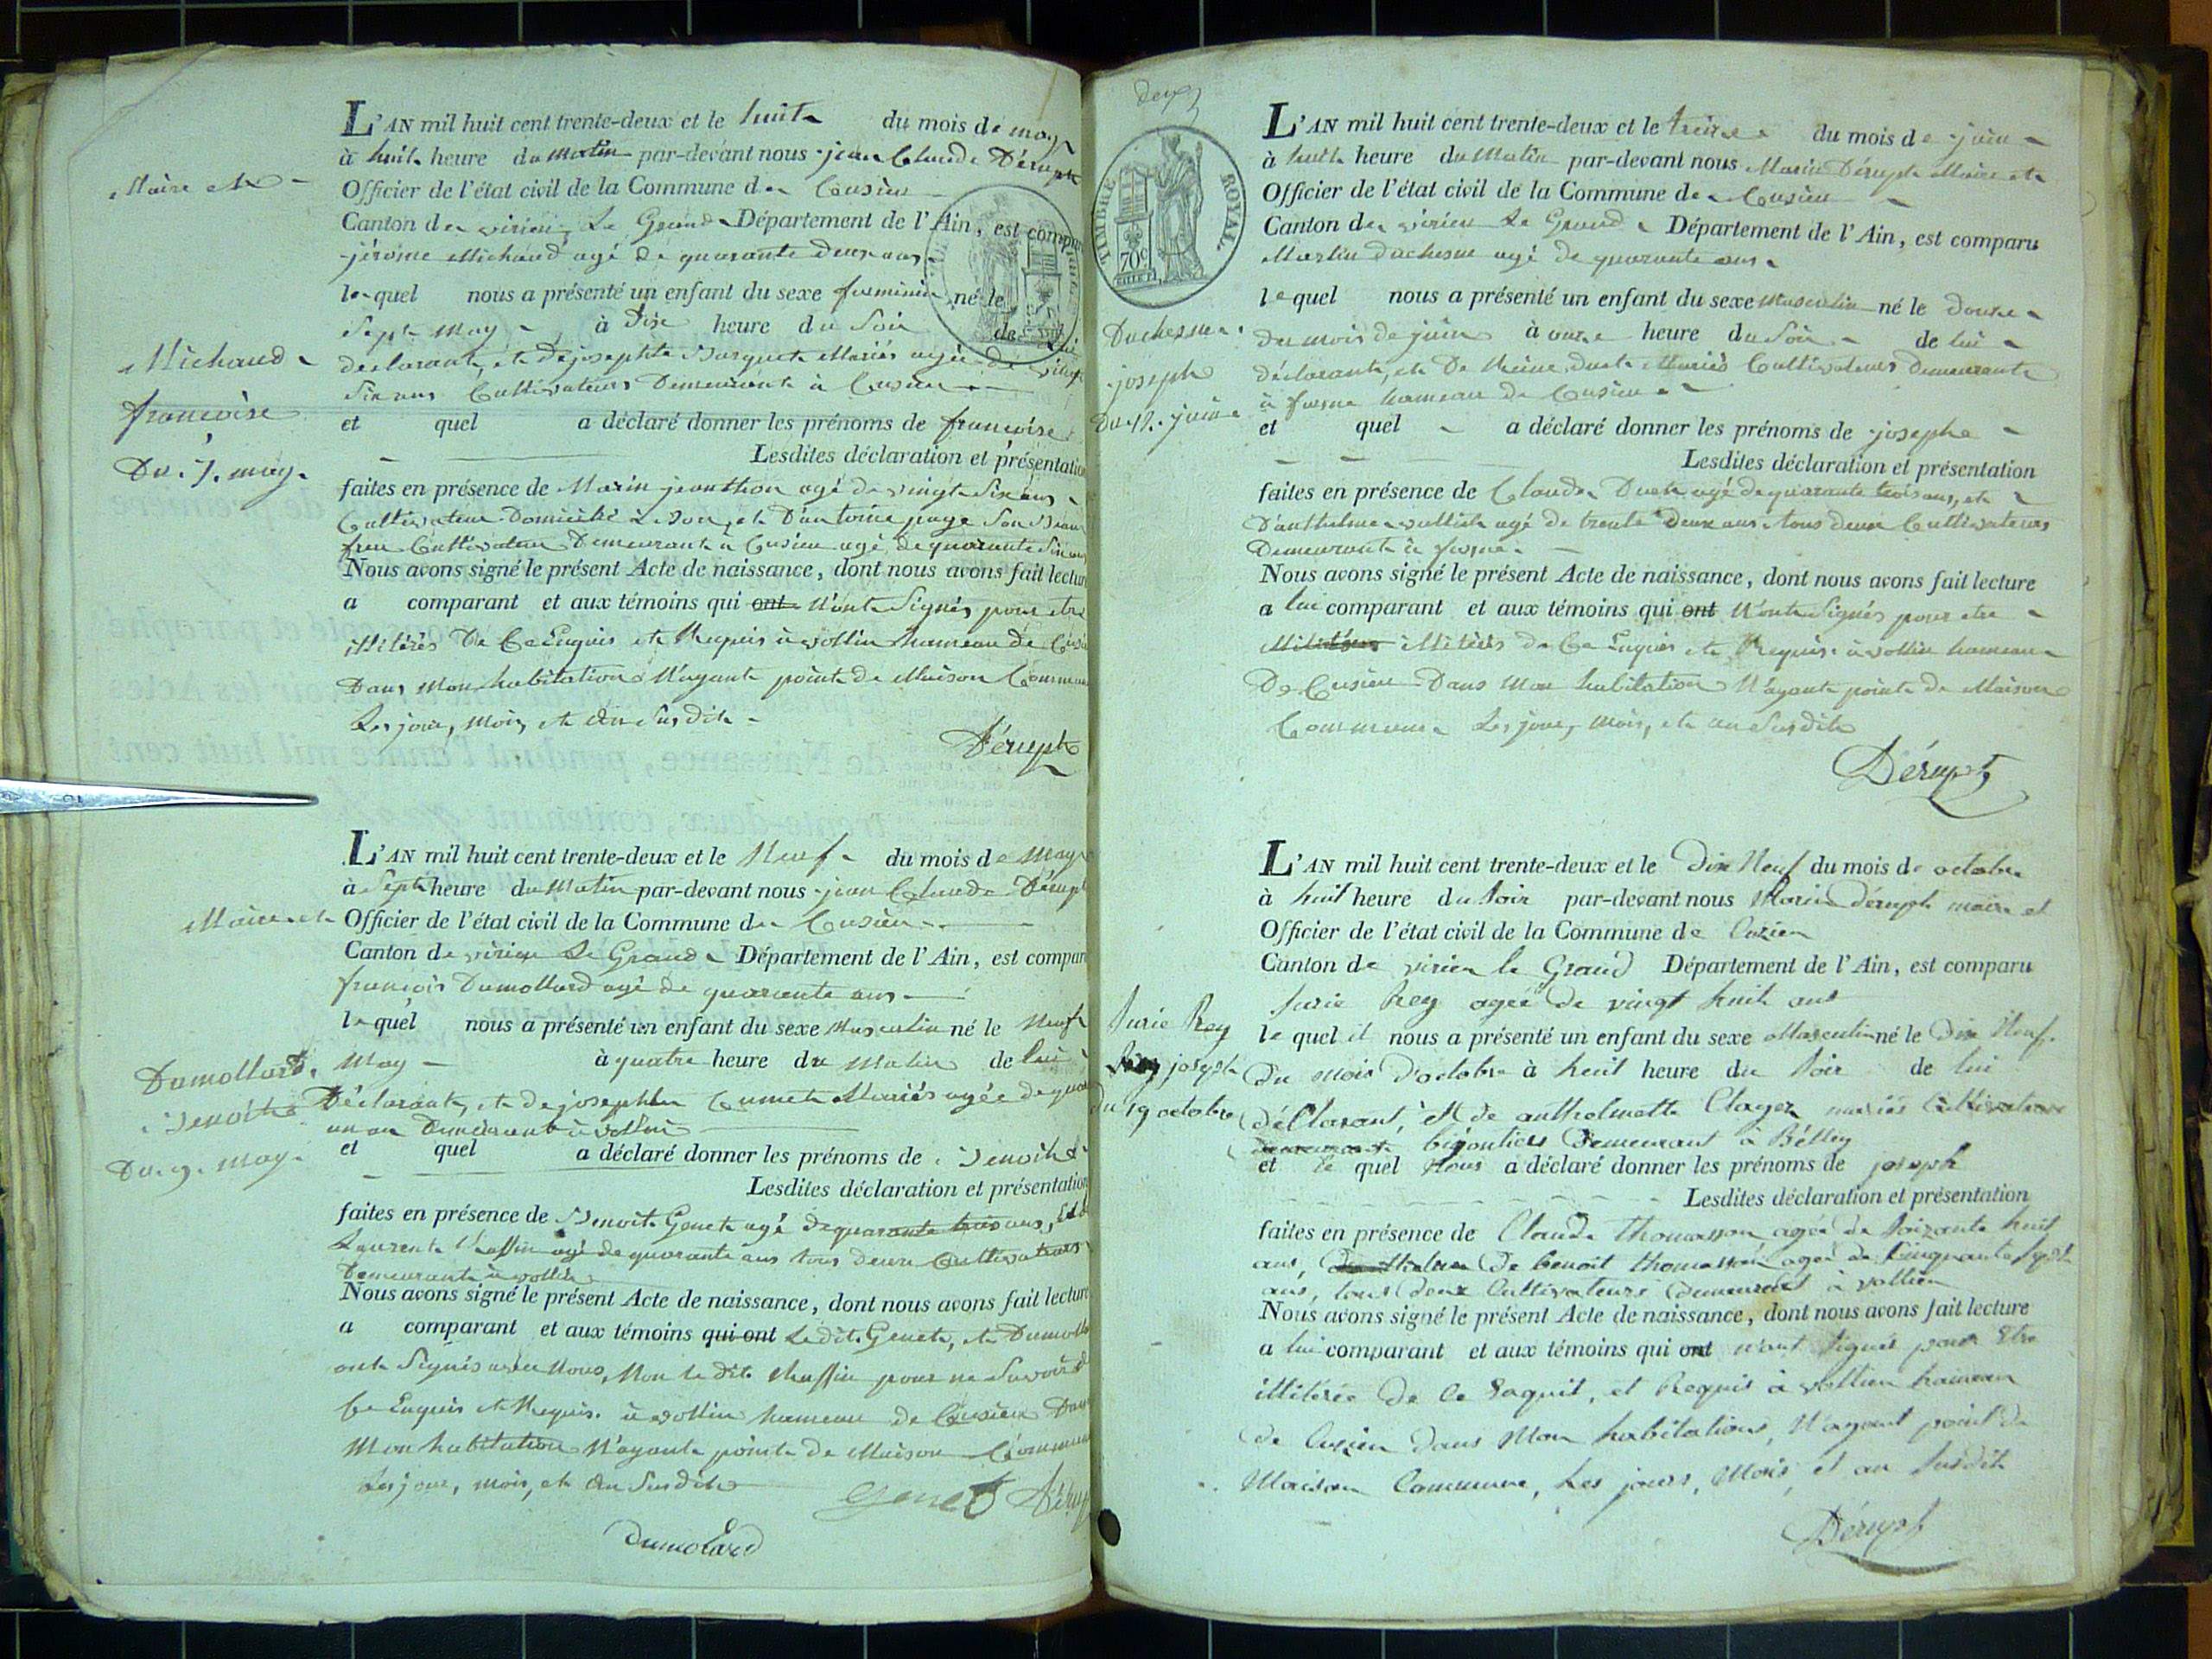 L'AN mil huit cent trente-deux et le huit du mois de may
à huit heure du matin par-devant nous jean Claude Dérupt
Maire et
Officier de l'état civil de la Commune de Cusieu
Canton de virieu Le Grand Département de l'Ain, est comparu
jérôme Michaud agé de quarante deux ans
lequel nous a présenté un enfant du sexe feminin né le
sept may à dixe heure du soir de lui
Michaud
déclarant, et de josephte Burquet Mariés agée de vingt
six ans Cultivateurs Demeurant à Cusieu
françoise
et quel a déclaré donner les prénoms de françoise
Lesdites déclaration et présentation
Du 7. may.
faites en présence de Marin jeanthon agé de vingt six ans
Cultivateur Domicilié à Don, et D'antoine page son Beau
frere Cultivateur Demeurant à Cusieu agé de quarante six ans
Nous avons signé le présent Acte de naissance, dont nous avons fait lecture
a comparant et aux témoins qui ont N'ont Signés pour etre
illitérés De Ce Enquis et Requis à vollin hameau de Cusieu
Dans Mon habitation N'ayant point de Maison Commune
Les jour, mois, et an Susdit
Dérupt
L'AN mil huit cent trente-deux et le Neuf du mois de May
à Sept heure du Matin par-devant nous jean Claude Dérupt
Maire et
Officier de l'état civil de la Commune de Cusieu
Canton de virieu Le Grand Département de l'Ain, est comparu
françois Dumollard agé de quarante ans
lequel nous a présenté un enfant du sexe Masculin né le Neuf
May à quatre heure du Matin de lui
Dumollard.
Déclarant, et de josephte Cumet Mariés agée de
Benoit
un an Demeurant à vollin
et quel a déclaré donner les prénoms de Benoit
Du 9. May.
Lesdites déclaration et présentation
faites en présence de Benoit Genet agé de quarante trois ans, Et de
Laurent Chaffin agé de quarante ans tous deux Cultivateurs
Demeurant à vollin
Nous avons signé le présent Acte de naissance, dont nous avons fait lecture
a comparant et aux témoins qui ont Ledit Genet, et Dumollard
ont Signés avec Nous, Non le dit Chaffin pour ne Savoir de
Ce Enquis et Requis. à vollin hameau de Cusieu Dans
Mon habitation N'ayant point de Maison Commune
Les jour, mois, et An Susdit
Genet Dérupt
Dumolard
deux
TIMBRE ROYAL.
70c
L'AN mil huit cent trente-deux et le treize du mois de juin
à huit heure du Matin par-devant nous Marin Dérupt Maire et
Officier de l'état civil de la Commune de Cusieu
Canton de virieu Le Grand Département de l'Ain, est comparu
Martin Duchesne agé de quarante ans
lequel nous a présenté un enfant du sexe Masculin né le douze
Duchesne.
du mois de juin à onze heure du Soir de lui
déclarant, et De Reine Duet Mariés Cultivateurs Demeurant
joseph
à hameau de Cusieu
Du 12. juin
et quel a déclaré donner les prénoms de joseph
Lesdites déclaration et présentation
faites en présence de Claude Duet agé de quarante trois ans, et
D'anthelme vulliet agé de trente deux ans tous deux Cultivateurs
Demeurant à
Nous avons signé le présent Acte de naissance, dont nous avons fait lecture
a lui comparant et aux témoins qui ont N'ont Signés pour etre
illitérés De Ce Enquis et Requis. à vollin hameau
De Cusieu Dans Mon habitation N'ayant point de Maison
Commune Les jour, mois, et an Susdit
Dérupt
L'AN mil huit cent trente-deux et le Dix Neuf du mois de octobre
à huit heure du soir par-devant nous Marin dérupt maire et
Officier de l'état civil de la Commune de Cuzieu
Canton de virieu le Grand Département de l'Ain, est comparu
Rey agée de vingt huit ans
Rey
lequel il nous a présenté un enfant du sexe Masculin né le Dix Neuf.
joseph
du Mois d'octobre à huit heure du soir de lui
du 19 octobre
déClarant, et de anthelmette Clayer mariés
bijoutiers Demeurant à Bélley
et le quel Nous a déclaré donner les prénoms de joseph
Lesdites déclaration et présentation
faites en présence de Claude thomasson agée de soixante huit
ans, De benoit thomasson agée de Cinquante sept
ans, tous deux Cultivateurs demeurant à vollien
Nous avons signé le présent Acte de naissance, dont nous avons fait lecture
a lui comparant et aux témoins qui ont n'ont signés pour Etre
illitérée De Ce Enquit, et Requis à vollien hameau
de Cuzieu dans Mon habitations, N'ayant point de
Maison Commune, Les jours, Mois, et an susdit
Dérupt